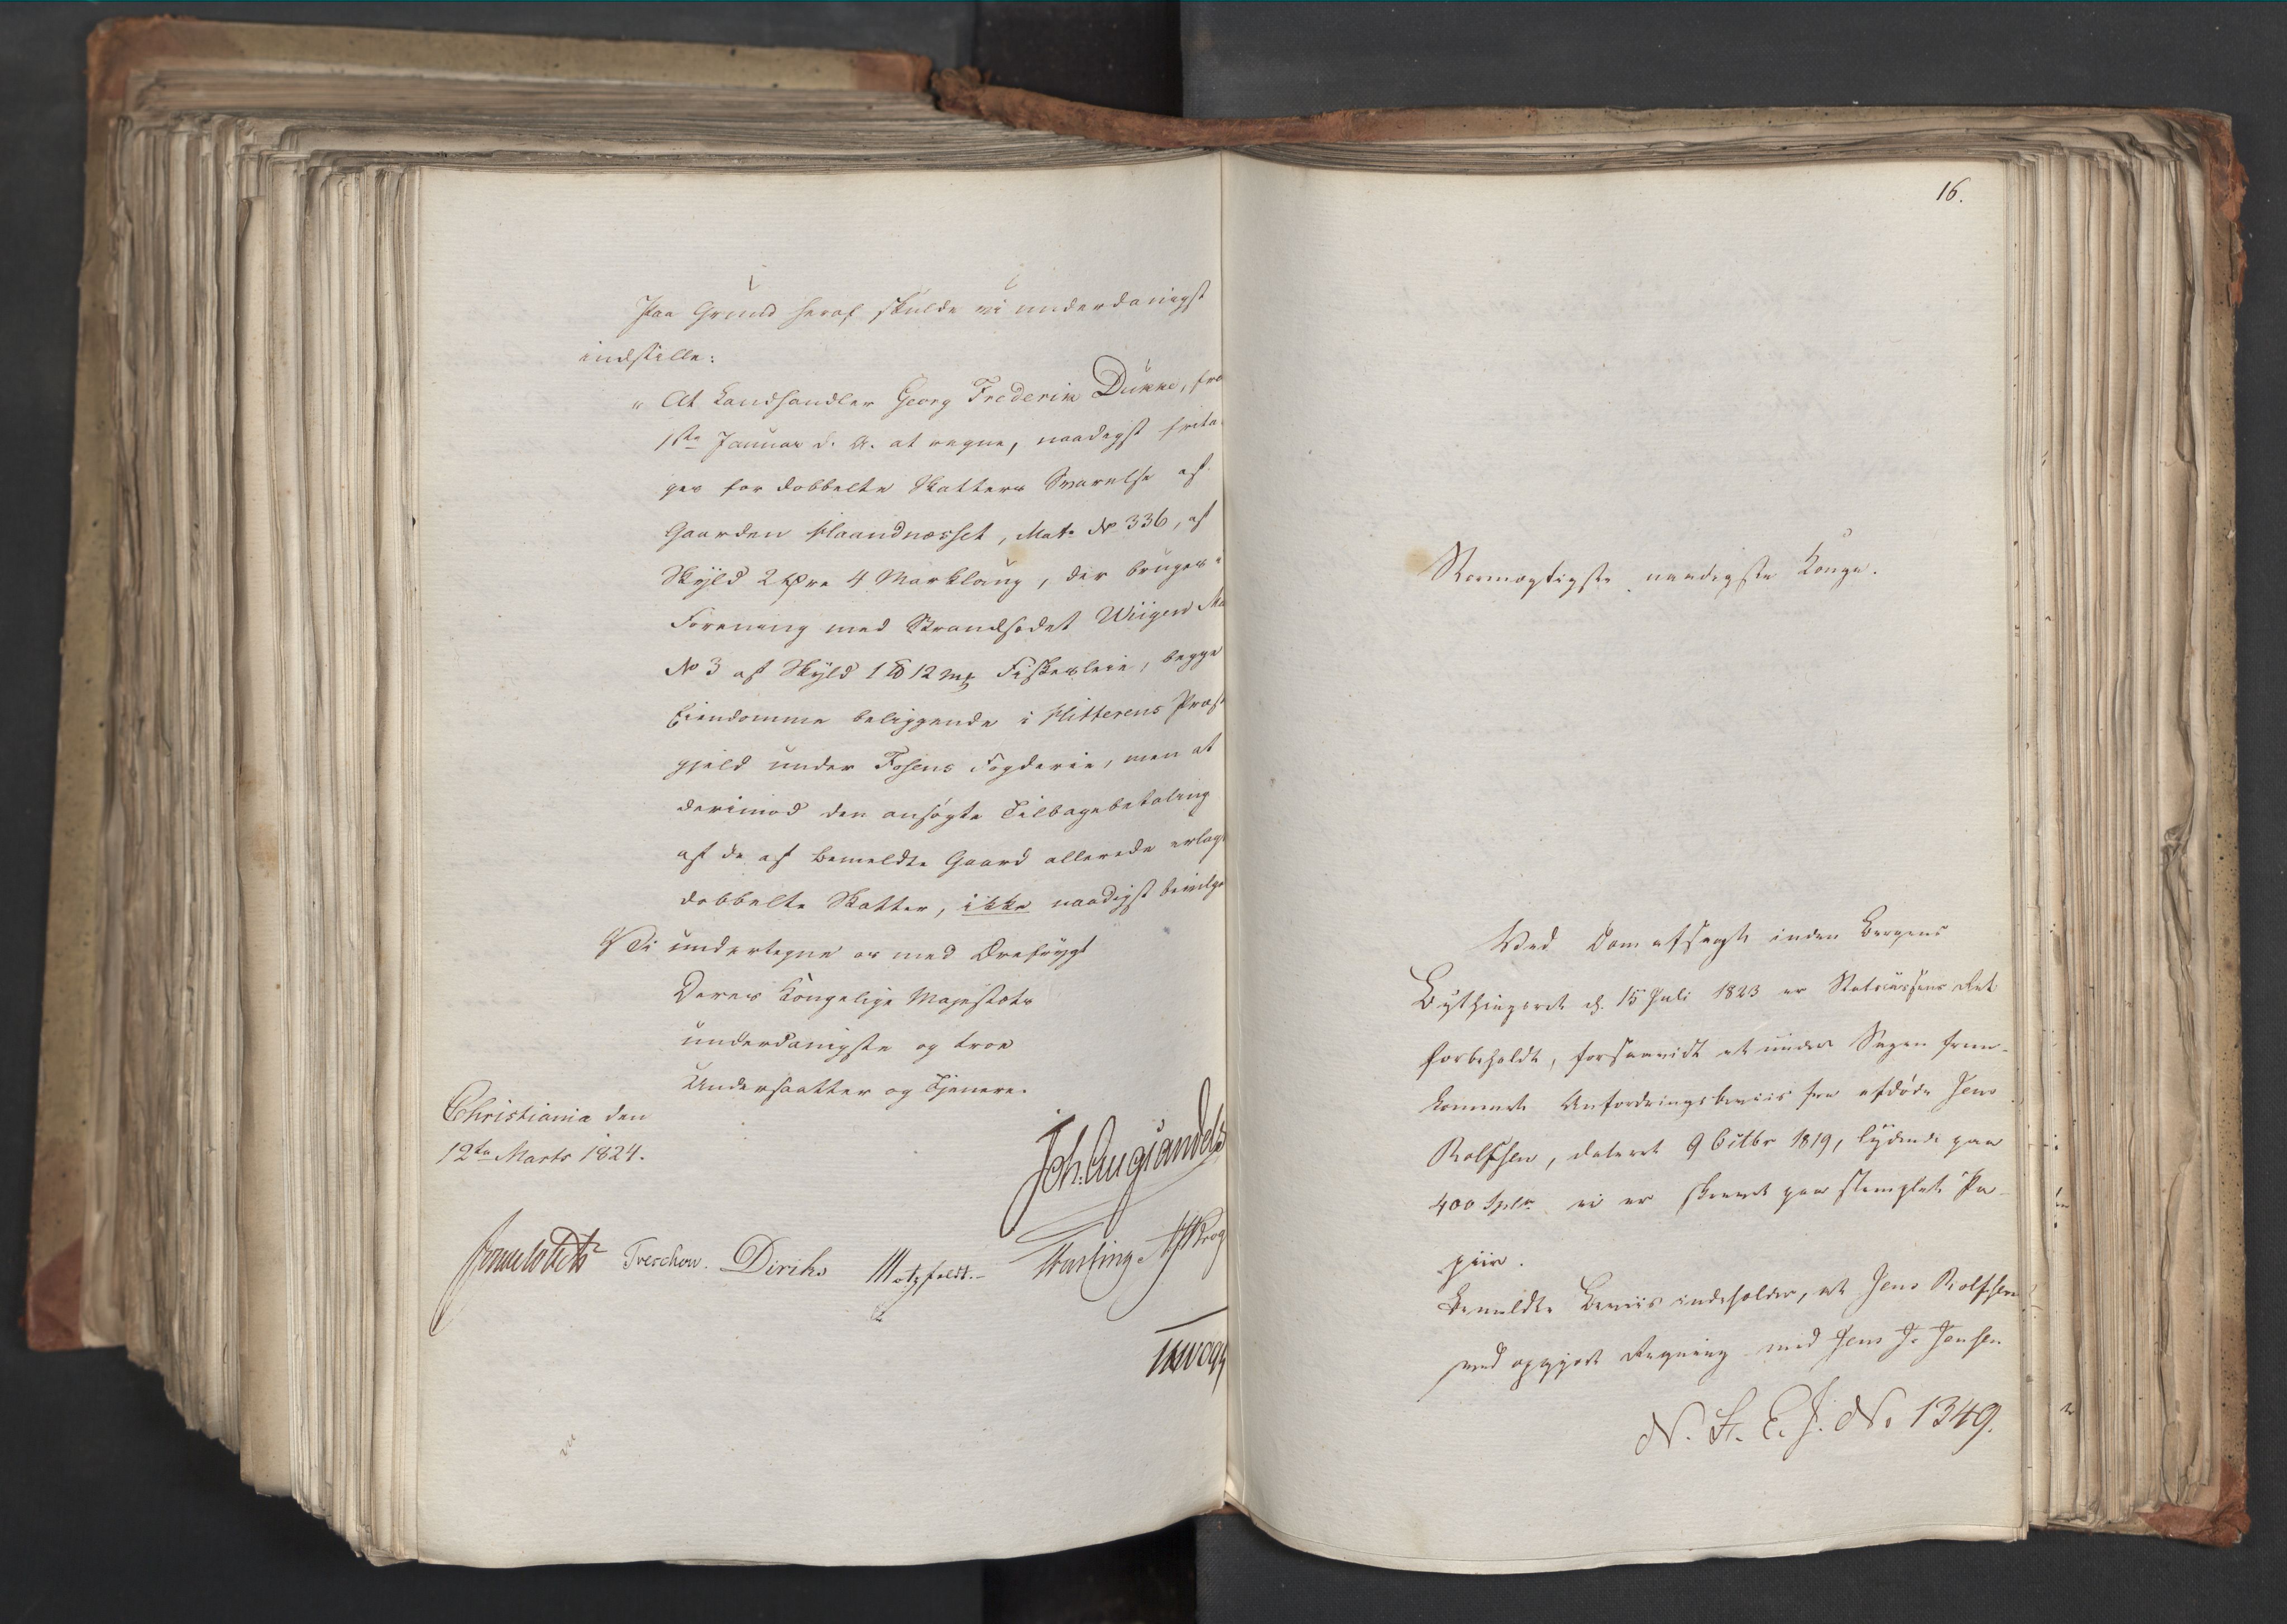 Paa Grund heraf skulde vi underdanigst
indstille:
„At Landhandler Georg Frederik Dükke, fra
1ste Januar d. A. at regne, naadigst frita-
ges for dobbelte Skatters Svarelse af
Gaarden Haandnæsset, Mat. No 336, af
Skyld 2 Øre 4 Marklaug, der bruges i
Forening med Strandsædet Wiigen Ma
No 3 af Skyld 1 ℔ 12 mk Fiskerleie, begge
Eiendomme beliggende i Hitterens Præste
gjeld under Fosens Fogderie, men at
derimod den ansøgte Tilbagebetaling
af de af bemeldte Gaard allerede erlagte
dobbelte Skatter, ikke naadigst bevilges
Vi undertegne os med Ærefrygt
Deres Kongelige Majestæts
underdanigste og troe
Undersaatter og Tjenere.
Christiania den
12te Marts 1824.
Joh. Aug. Sandels
Sommerhielm Treschow. Diriks Motzfeldt. Fasting. Krog
16.
Stormægtigste, naadigste Konge.
Ved Dom afsagt inden Bergens
Bythingsret d. 15 Juli 1823 er Statscassens Ret
forbeholdt, forsaavidt et under Sagen frem-
kommet Anfordringsbeviis fra afdøde Jens
Rolfsen, dateret 9 Octbr 1819, lydende paa
400 Spdlr. ei er skrevet paa stemplet Pa-
piir.
Bemeldte Beviis indeholder, at Jens Rolfsen
ved opgjort Regning med Jens J. Jansen
N. St. E. J. No 1349.